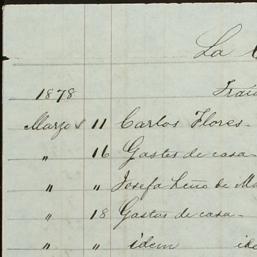 La
1878
Marzo 11 Carlos Flores-
" 16 Gastos de casa
" " Josefa
" 18 Gastos de casa-
" " idem